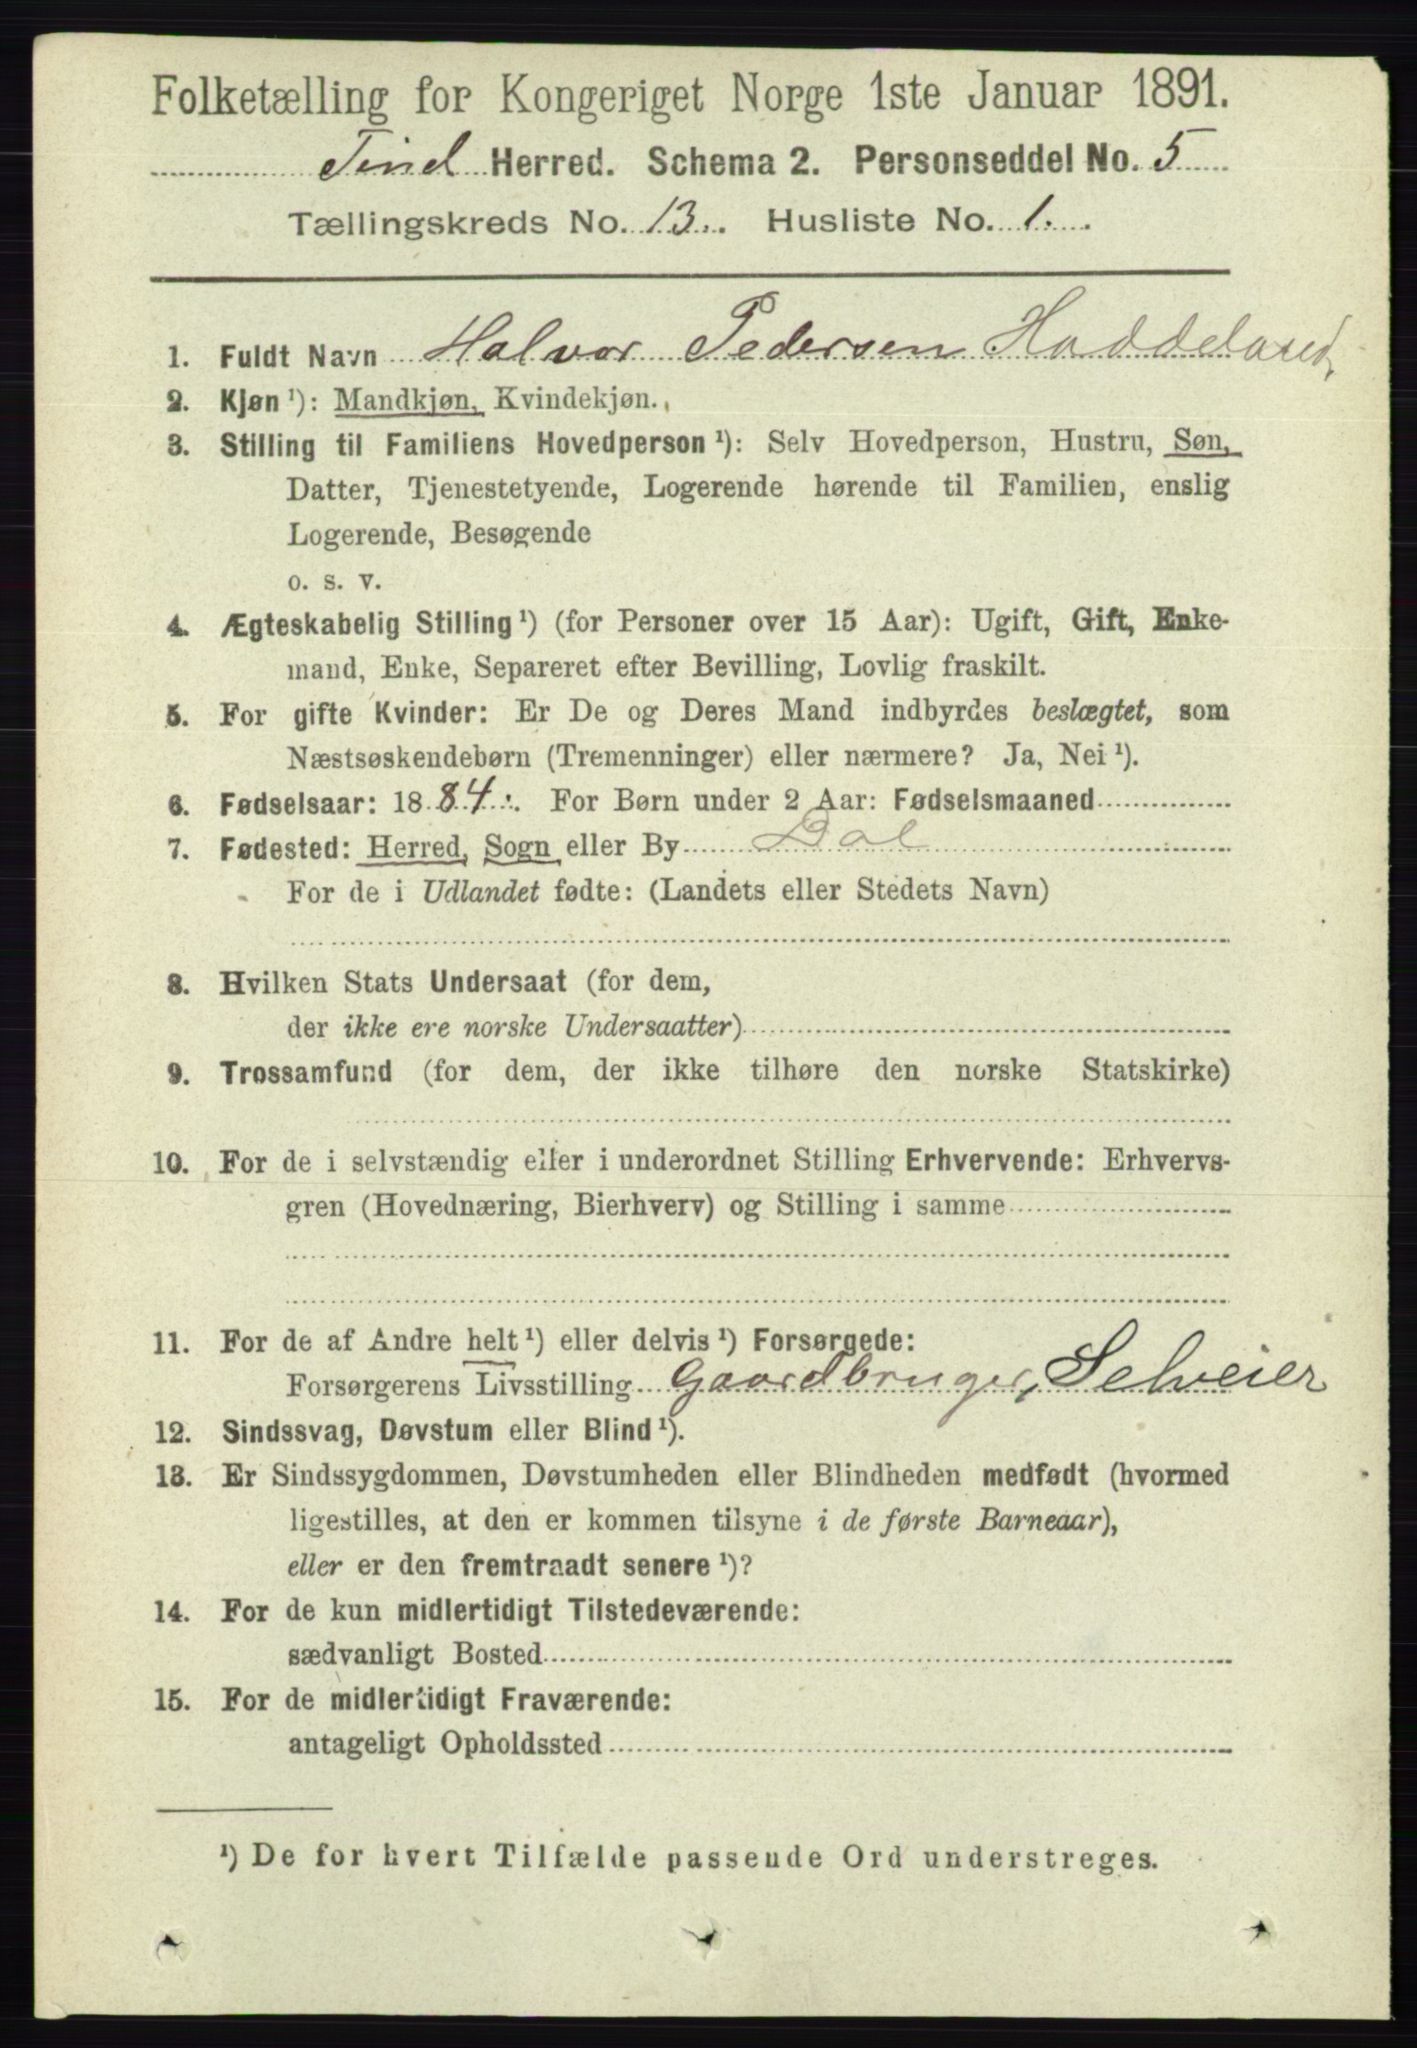 Folketælling for Kongeriget Norge 1ste Januar 1891.
Tind Herred. Schema 2. Personseddel No. 5
Tællingskreds No. 13. Husliste No. 1.
1. Fuldt Navn Halvor Pedersen Haddeland,
2. Kjøn ¹): Mandkjøn, Kvindekjøn.
3. Stilling til Familiens Hovedperson ¹): Selv Hovedperson, Hustru, Søn,
Datter, Tjenestetyende, Logerende hørende til Familien, enslig
Logerende, Besøgende
o. s. v.
4. Ægteskabelig Stilling ¹) (for Personer over 15 Aar): Ugift, Gift, Enke-
mand, Enke, Separeret efter Bevilling, Lovlig fraskilt.
5. For gifte Kvinder: Er De og Deres Mand indbyrdes beslægtet, som
Næstsøskendebørn (Tremenninger) eller nærmere? Ja, Nei ¹).
6. Fødselsaar: 1884. For Børn under 2 Aar: Fødselsmaaned
7. Fødested: Herred, Sogn eller By Dal
For de i Udlandet fødte: (Landets eller Stedets Navn)
8. Hvilken Stats Undersaat (for dem,
der ikke ere norske Undersaatter)
9. Trossamfund (for dem, der ikke tilhøre den norske Statskirke)
10. For de i selvstændig eller i underordnet Stilling Erhvervende: Erhvervs-
gren (Hovednæring, Bierhverv) og Stilling i samme
11. For de af Andre helt ¹) eller delvis ¹) Forsørgede:
Forsørgerens Livsstilling Gaardbruger, Selveier
12. Sindssvag, Døvstum eller Blind ¹).
13. Er Sindssygdommen, Døvstumheden eller Blindheden medfødt (hvormed
ligestilles, at den er kommen tilsyne i de første Barneaar),
eller er den fremtraadt senere ¹)?
14. For de kun midlertidigt Tilstedeværende:
sædvanligt Bosted
15. For de midlertidigt Fraværende:
antageligt Opholdssted
¹) De for hvert Tilfælde passende Ord understreges.